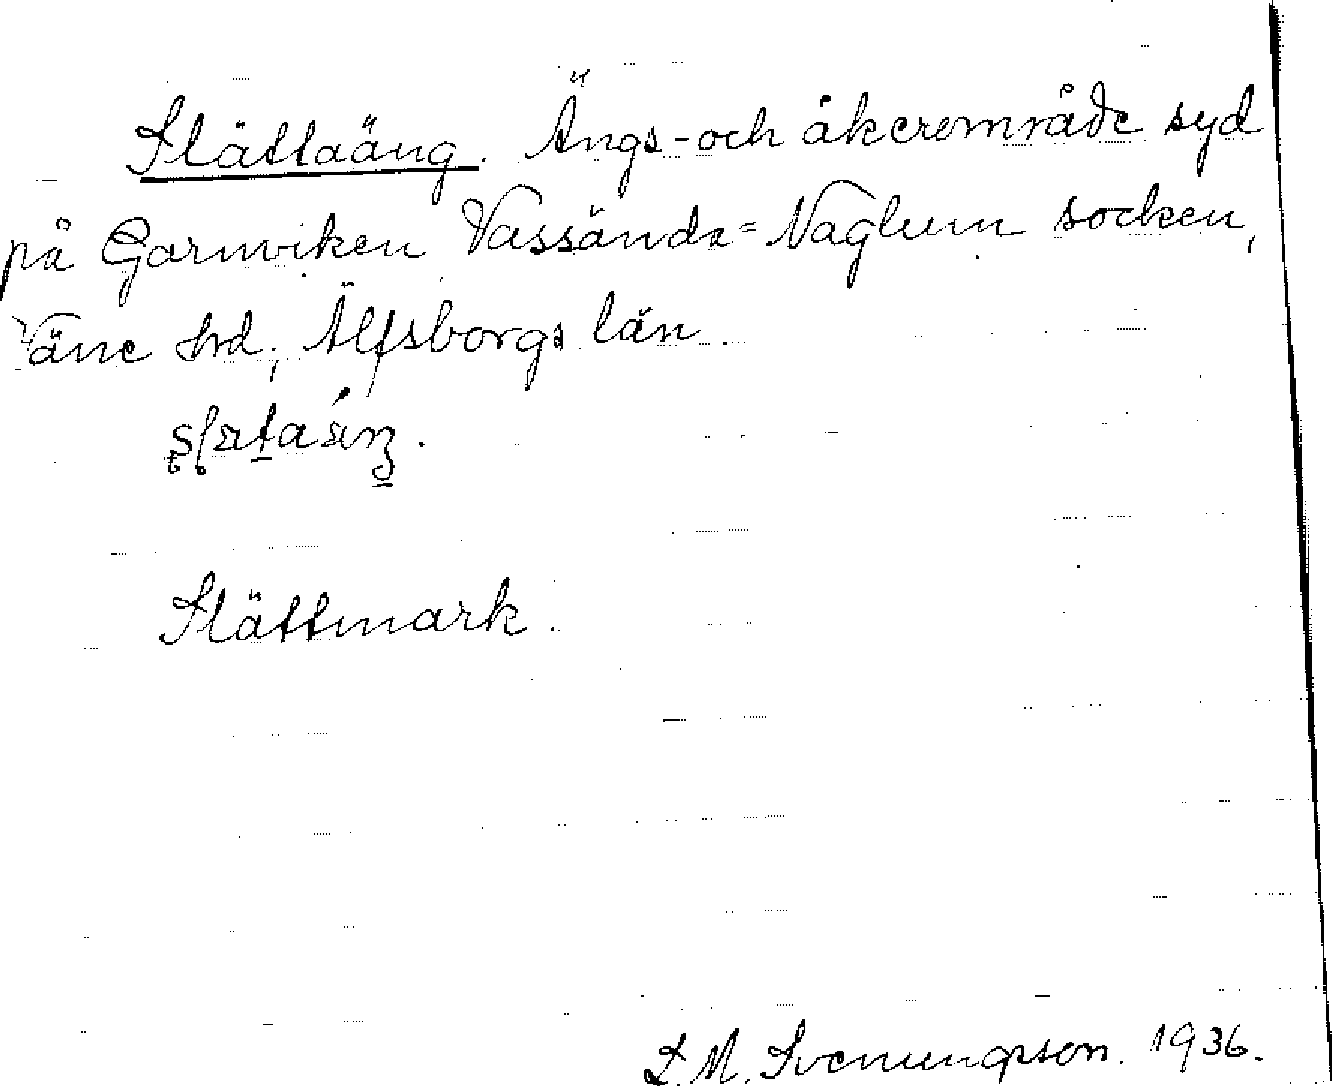 Slättaäng. Ängs- och åkerområde syd
på Garnviken Vassända=Naglum socken,
Väne hrd, Älfsborgs län.
Slättmark.
L. M. Svenungsson. 1936.